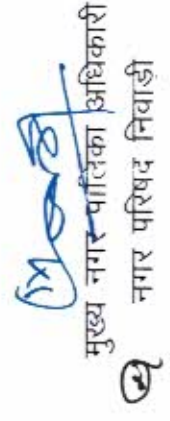 मुख्य नगर पालिका अधिकारी
नगर परिषद निवाड़ी